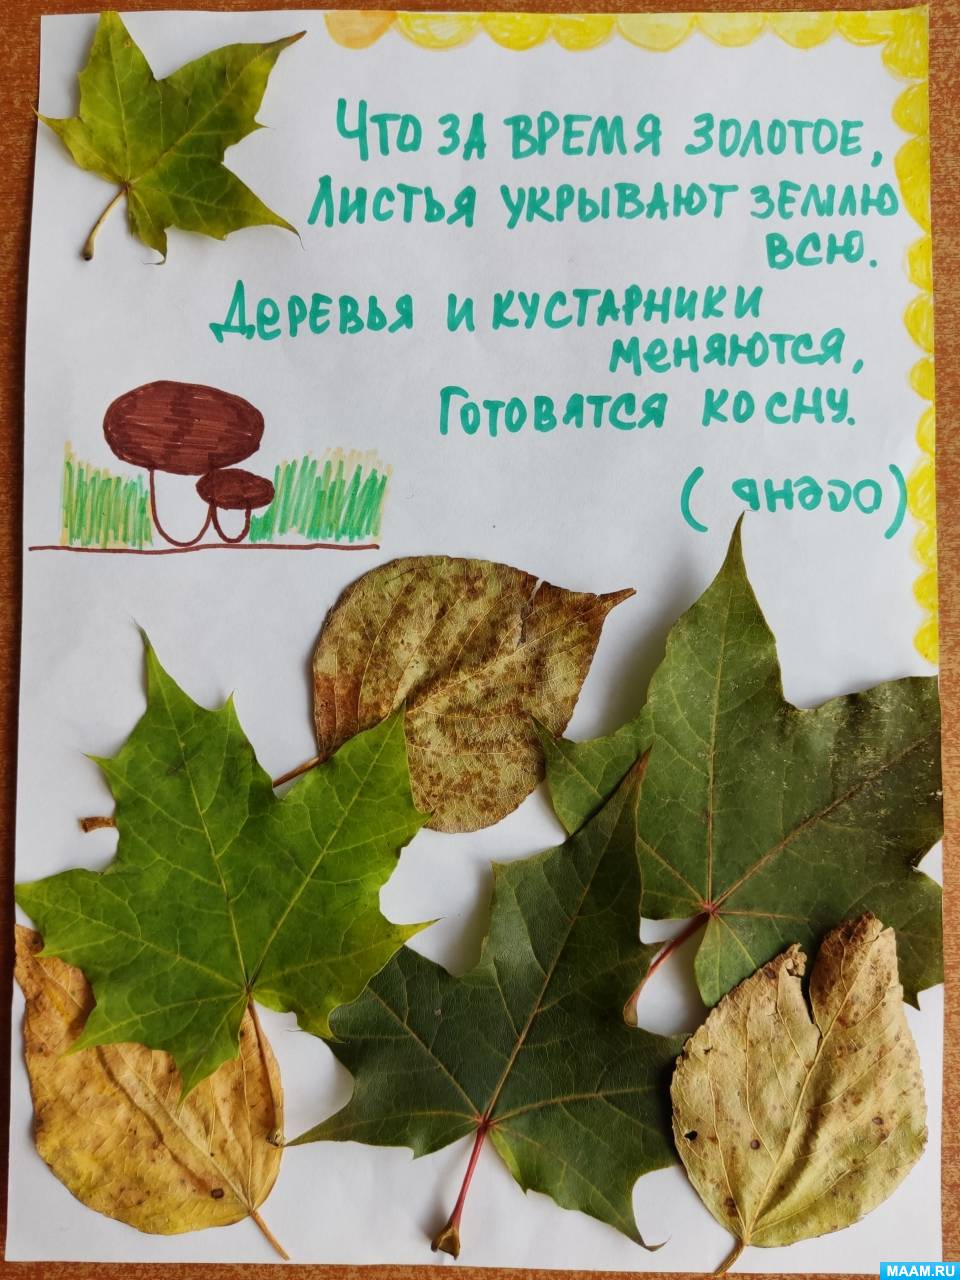 Что за время золотое,
Листья укрывают землю
всю.
Деревья и кустарники
меняются,
Готовятся ко сну.
(осень)
MAAM.RU